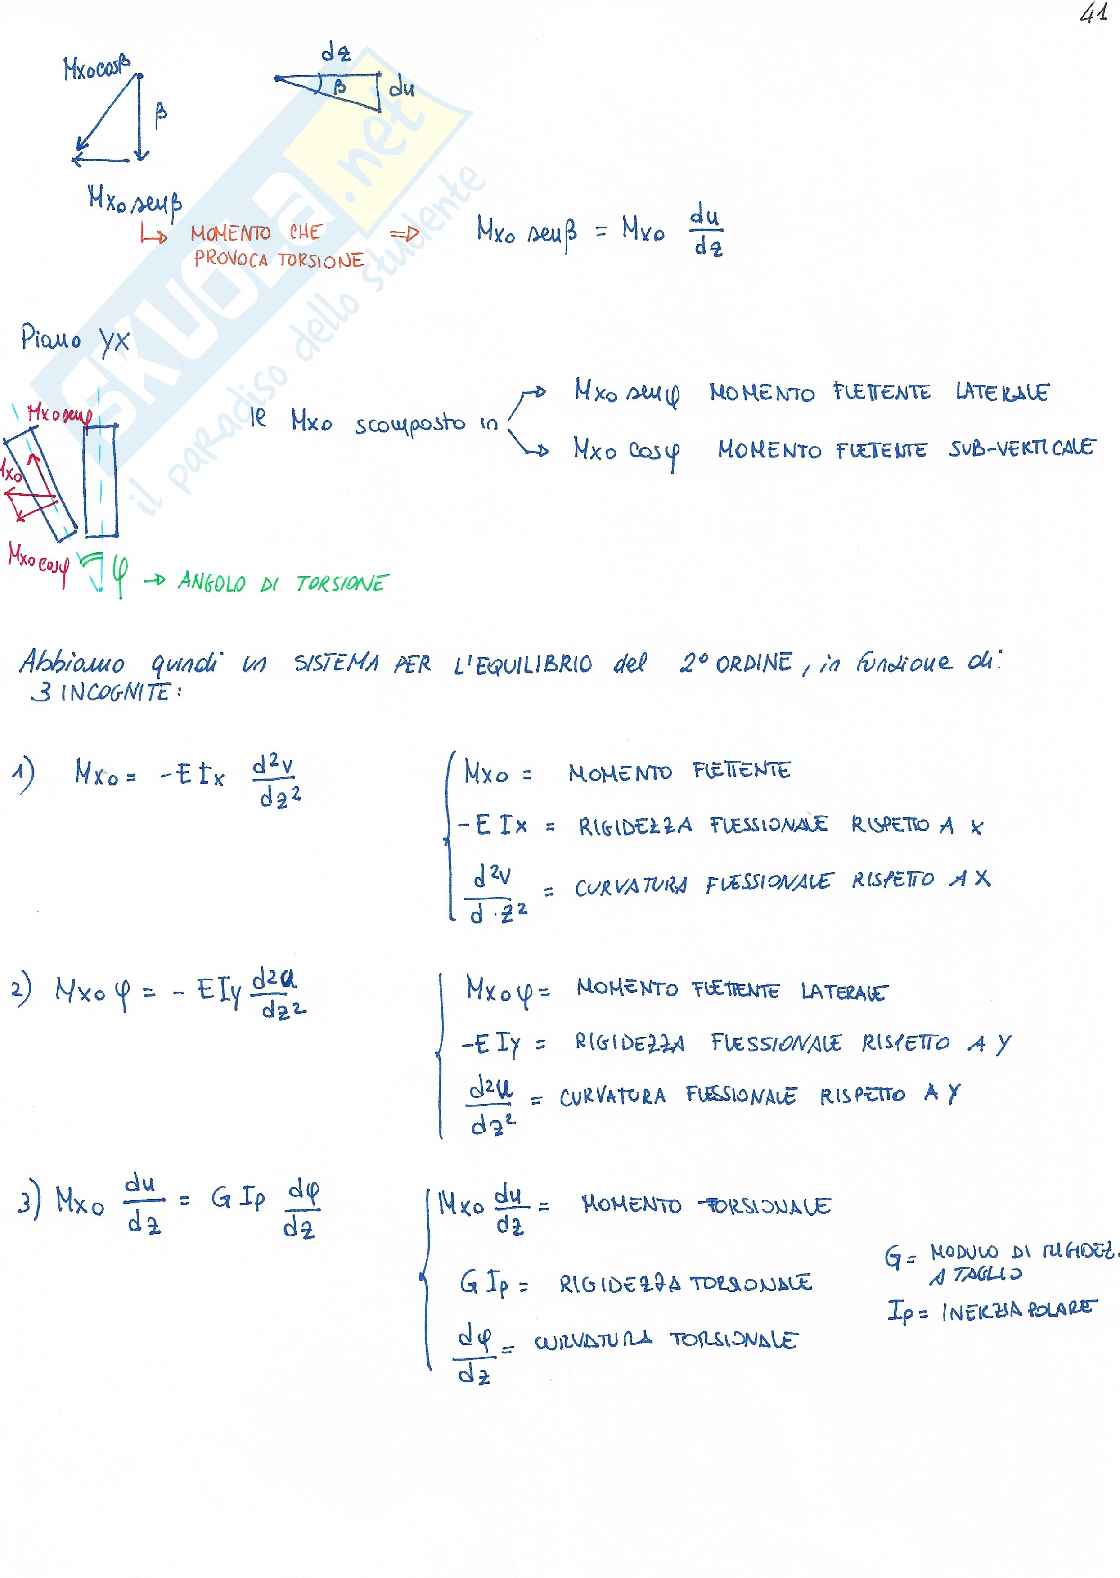 41
Mxo cosβ
dz
β
β
du
Mxo senβ
↳ MOMENTO CHE PROVOCA TORSIONE ⇒ Mxo senβ = Mxo du/dz
SKUOLA.net
il paradiso dello studente
Piano yx
Mxo senφ
Mxo
Mxo cosφ
Mxo scomposto in
→ Mxo senφ MOMENTO FLETTENTE LATERALE
→ Mxo cosφ MOMENTO FLETTENTE SUB-VERTICALE
φ → ANGOLO DI TORSIONE
Abbiamo quindi un SISTEMA PER L'EQUILIBRIO del 2° ORDINE, in funzione di
3 INCOGNITE:
1) Mxo = -E Ix d²v/dz²
Mxo = MOMENTO FLETTENTE
-E Ix = RIGIDEZZA FLESSIONALE RISPETTO A X
d²v/d·z² = CURVATURA FLESSIONALE RISPETTO A X
2) Mxo φ = - EIy d²u/dz²
Mxo φ = MOMENTO FLETTENTE LATERALE
-E Iy = RIGIDEZZA FLESSIONALE RISPETTO A Y
d²u/dz² = CURVATURA FLESSIONALE RISPETTO A Y
3) Mxo du/dz = G Ip dφ/dz
Mxo du/dz = MOMENTO TORSIONALE
G Ip = RIGIDEZZA TORSIONALE
dφ/dz = CURVATURA TORSIONALE
G = MODULO DI RIGIDEZ.
A TAGLIO
Ip = INERZIA POLARE